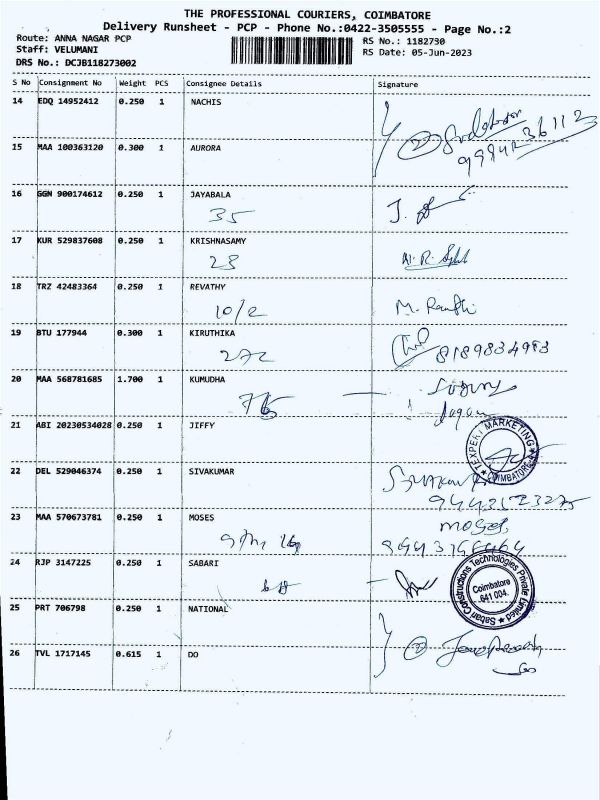 THE PROFESSIONAL COURIERS, COIMBATORE
Delivery Runsheet - PCP - Phone No.:0422-3505555 - Page No.:2
Route: ANNA NAGAR PCP
RS No.: 1182730
Staff: VELUMANI
RS Date: 05-Jun-2023
DRS No.: DCJB118273002
S No Consignment No Weight PCS Consignee Details Signature
14 EDQ 14952412 0.250 1 NACHIS
15 MAA 100363120 0.300 1 AURORA
16 GGN 900174612 0.250 1 JAYABALA
35
17 KUR 529837608 0.250 1 KRISHNASAMY
23
18 TRZ 42483364 0.250 1 REVATHY
10/2
19 BTU 177944 0.300 1 KIRUTHIKA
272 8189834983
20 MAA 568781685 1.700 1 KUMUDHA
76
21 ABI 20230534028 0.250 1 JIFFY
TEXPERT MARKETING
COIMBATORE
22 DEL 529046374 0.250 1 SIVAKUMAR
23 MAA 570673781 0.250 1 MOSES
moses
24 RJP 3147225 0.250 1 SABARI
Sabari Constructions Technologies Private Limited
Coimbatore
641 004.
25 PRT 706798 0.250 1 NATIONAL
26 TVL 1717145 0.615 1 DO